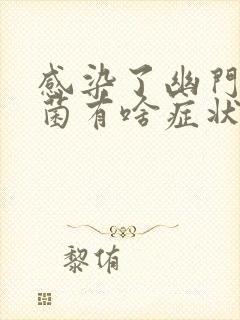 感染了幽門
菌有啥症狀
黎侑